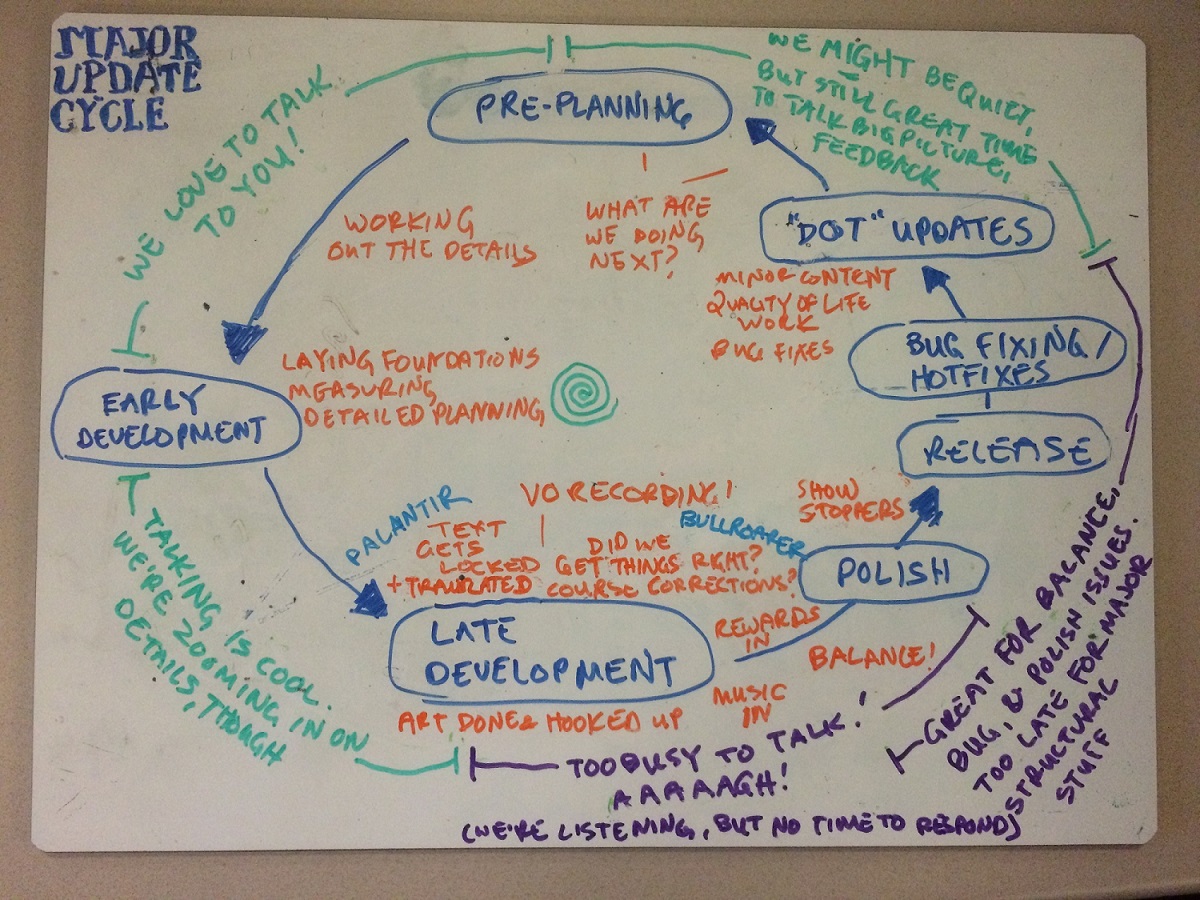 MAJOR
UPDATE
CYCLE
WE LOVE TO TALK
TO YOU!
PRE-PLANNING
WE MIGHT BE QUIET,
BUT STILL GREAT TIME
TO TALK BIG PICTURE,
FEEDBACK
WORKING
OUT THE DETAILS
WHAT ARE
WE DOING
NEXT?
"DOT" UPDATES
MINOR CONTENT
QUALITY OF LIFE
WORK
BUG FIXES
BUG FIXING/
HOTFIXES
RELEASE
LAYING FOUNDATIONS
MEASURING
DETAILED PLANNING
EARLY
DEVELOPMENT
TALKING IS COOL.
WE'RE ZOOMING IN ON
DETAILS, THOUGH
PALANTIR
VO RECORDING!
TEXT
GETS
LOCKED
+ TRANSLATED
BULLROARER
DID WE
GET THINGS RIGHT?
COURSE CORRECTIONS?
SHOW
STOPPERS
POLISH
LATE
DEVELOPMENT
REWARDS
IN
BALANCE!
MUSIC
IN
ART DONE & HOOKED UP
TOO BUSY TO TALK!
AAAAAGH!
(WE'RE LISTENING, BUT NO TIME TO RESPOND)
GREAT FOR BALANCE,
BUG, & POLISH ISSUES.
TOO LATE FOR MAJOR
STRUCTURAL
STUFF